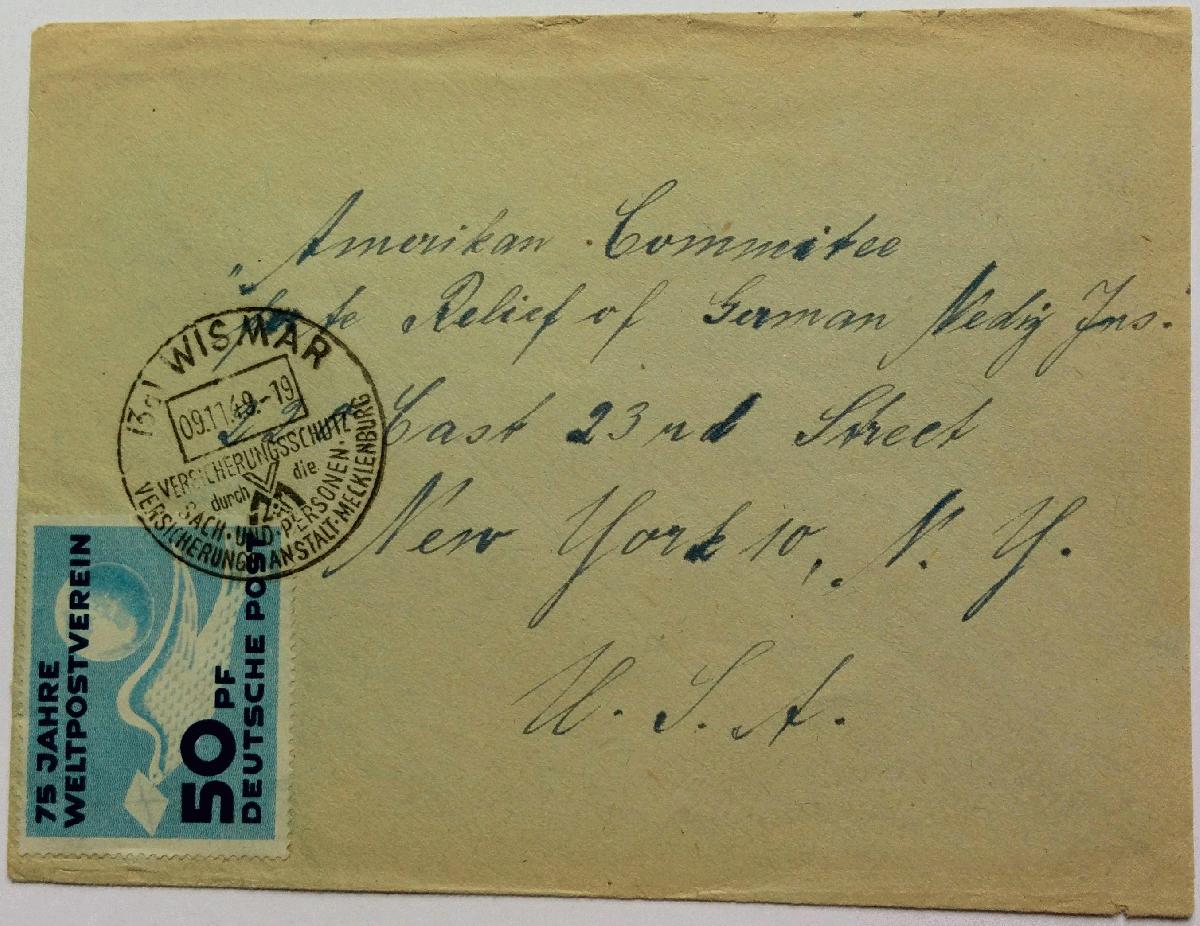 Amerikan Committee
te Relief of German Nedig Ins.
East 23rd Street
New York 10, N. Y.
U. S. A.
WISMAR
09.11.49.-19
VERSICHERUNGSSCHUTZ
durch die
SACH-UND-PERSONEN-
VERSICHERUNGSANSTALT-MECKLENBURG
75 JAHRE
WELTPOSTVEREIN
50 PF
DEUTSCHE POST